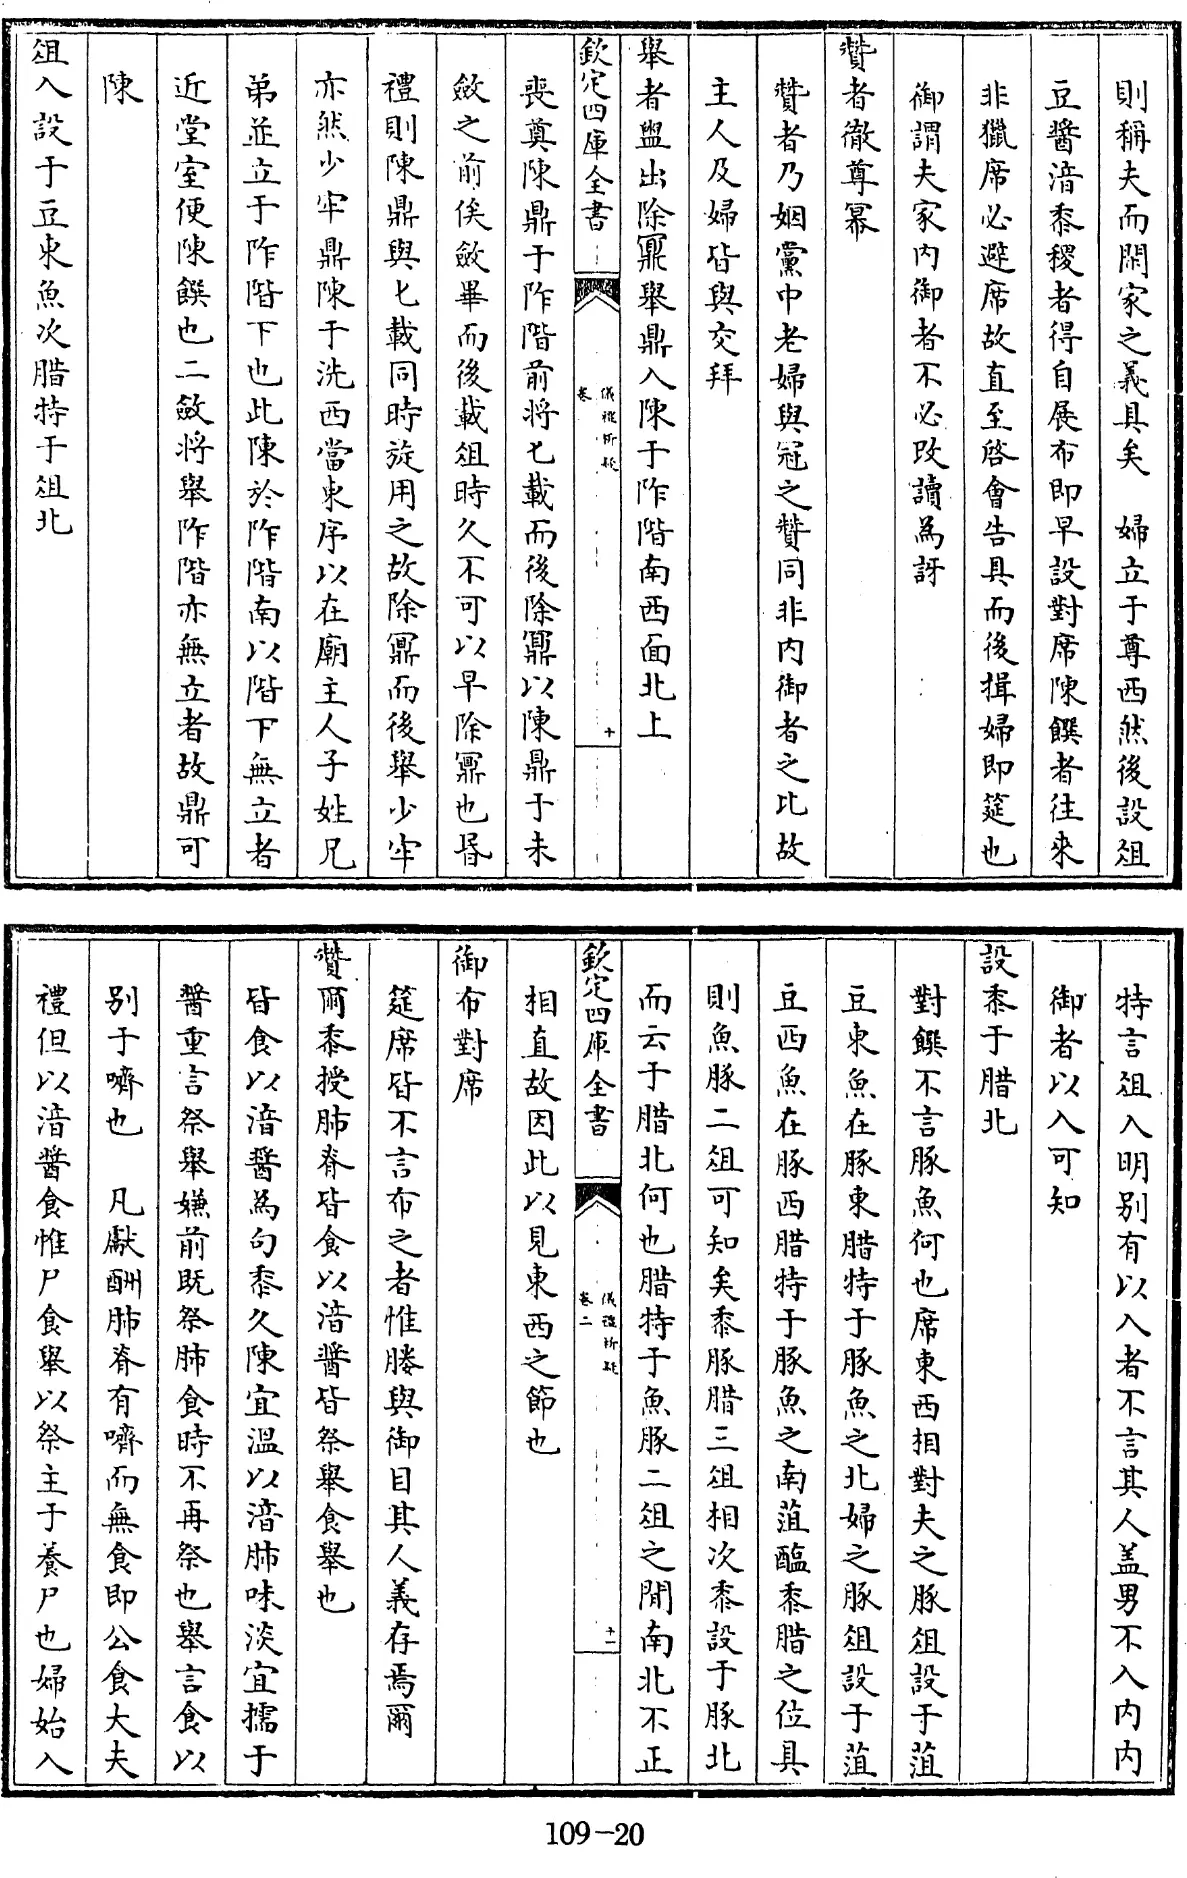 則稱夫而閑家之義具矣　婦立于尊西然後設俎
豆醬湆黍稷者得自展布即早設對席陳饌者往來
非獵席必避席故直至啓會告具而後揖婦即筵也
御謂夫家内御者不必改讀為訝
贊者徹尊冪
贊者乃姻黨中老婦與冠之贊同非内御者之比故
主人及婦皆與交拜
舉者盥出除鼏舉鼎入陳于阼階南西面北上
欽定四庫全書
儀禮析疑
卷二
十
喪奠陳鼎于阼階前将匕載而後除鼏以陳鼎于未
斂之前俟斂畢而後載俎時久不可以早除鼏也昏
禮則陳鼎與匕載同時旋用之故除鼏而後舉少牢
亦然少牢鼎陳于洗西當東序以在廟主人子姓兄
弟並立于阼階下也此陳於阼階南以階下無立者
近堂室便陳饌也二斂将舉阼階亦無立者故鼎可
陳
俎入設于豆東魚次腊特于俎北
特言俎入明别有以入者不言其人盖男不入内内
御者以入可知
設黍于腊北
對饌不言豚魚何也席東西相對夫之豚俎設于菹
豆東魚在豚東腊特于豚魚之北婦之豚俎設于菹
豆西魚在豚西腊特于豚魚之南菹醢黍腊之位具
則魚豚二俎可知矣黍豚腊三俎相次黍設于豚北
而云于腊北何也腊特于魚豚二俎之間南北不正
欽定四庫全書
儀禮析疑
卷二
十一
相直故因此以見東西之節也
御布對席
筵席皆不言布之者惟媵與御目其人義存焉爾
贊爾黍授肺脊皆食以湆醬皆祭舉食舉也
皆食以湆醬為句黍久陳宜温以湆肺味淡宜擩于
醬重言祭舉嫌前既祭肺食時不再祭也舉言食以
别于嚌也　凡獻酬肺脊有嚌而無食即公食大夫
禮但以湆醬食惟尸食舉以祭主于養尸也婦始入
109-20